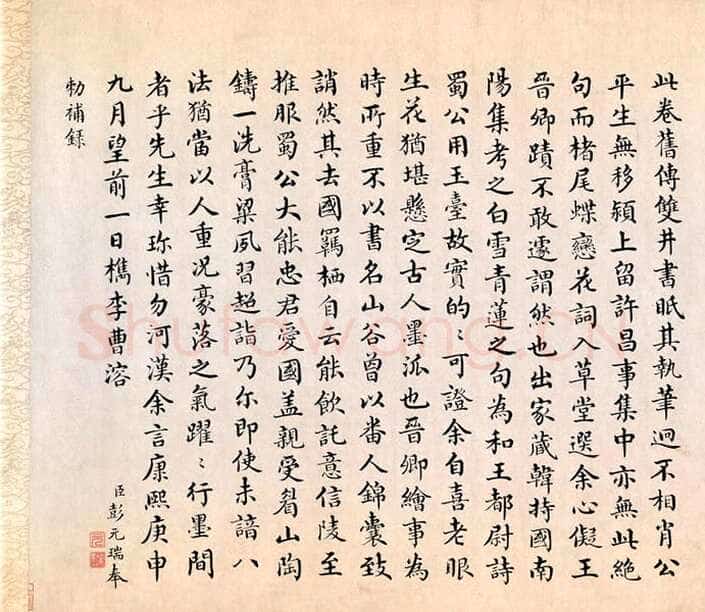 此卷舊傳雙井書眂其執筆迥不相肖公
平生無移潁上留許昌事集中亦無此絶
句而楮尾蝶戀花詞入草堂選余心儗王
晉卿蹟不敢遽謂然也出家蔵韓持國南
陽集考之白雪青蓮之句為和王都尉詩
蜀公用玉臺故實的〻可證余自喜老眼
生花猶堪懸定古人墨派也晉卿繪事為
時所重不以書名山谷曾以番人錦囊致
誚然其去國羈栖自云能飲託意信陵至
推服蜀公大能忠君愛國盖親受眉山陶
鑄一洗膏粱夙習超詣乃尔即使未諳八
法猶當以人重况豪落之氣躍〻行墨間
者乎先生幸珎惜勿河漢余言康熙庚申
九月望前一日檇李曹溶
臣彭元瑞奉
勅補録
Shufawang.CN